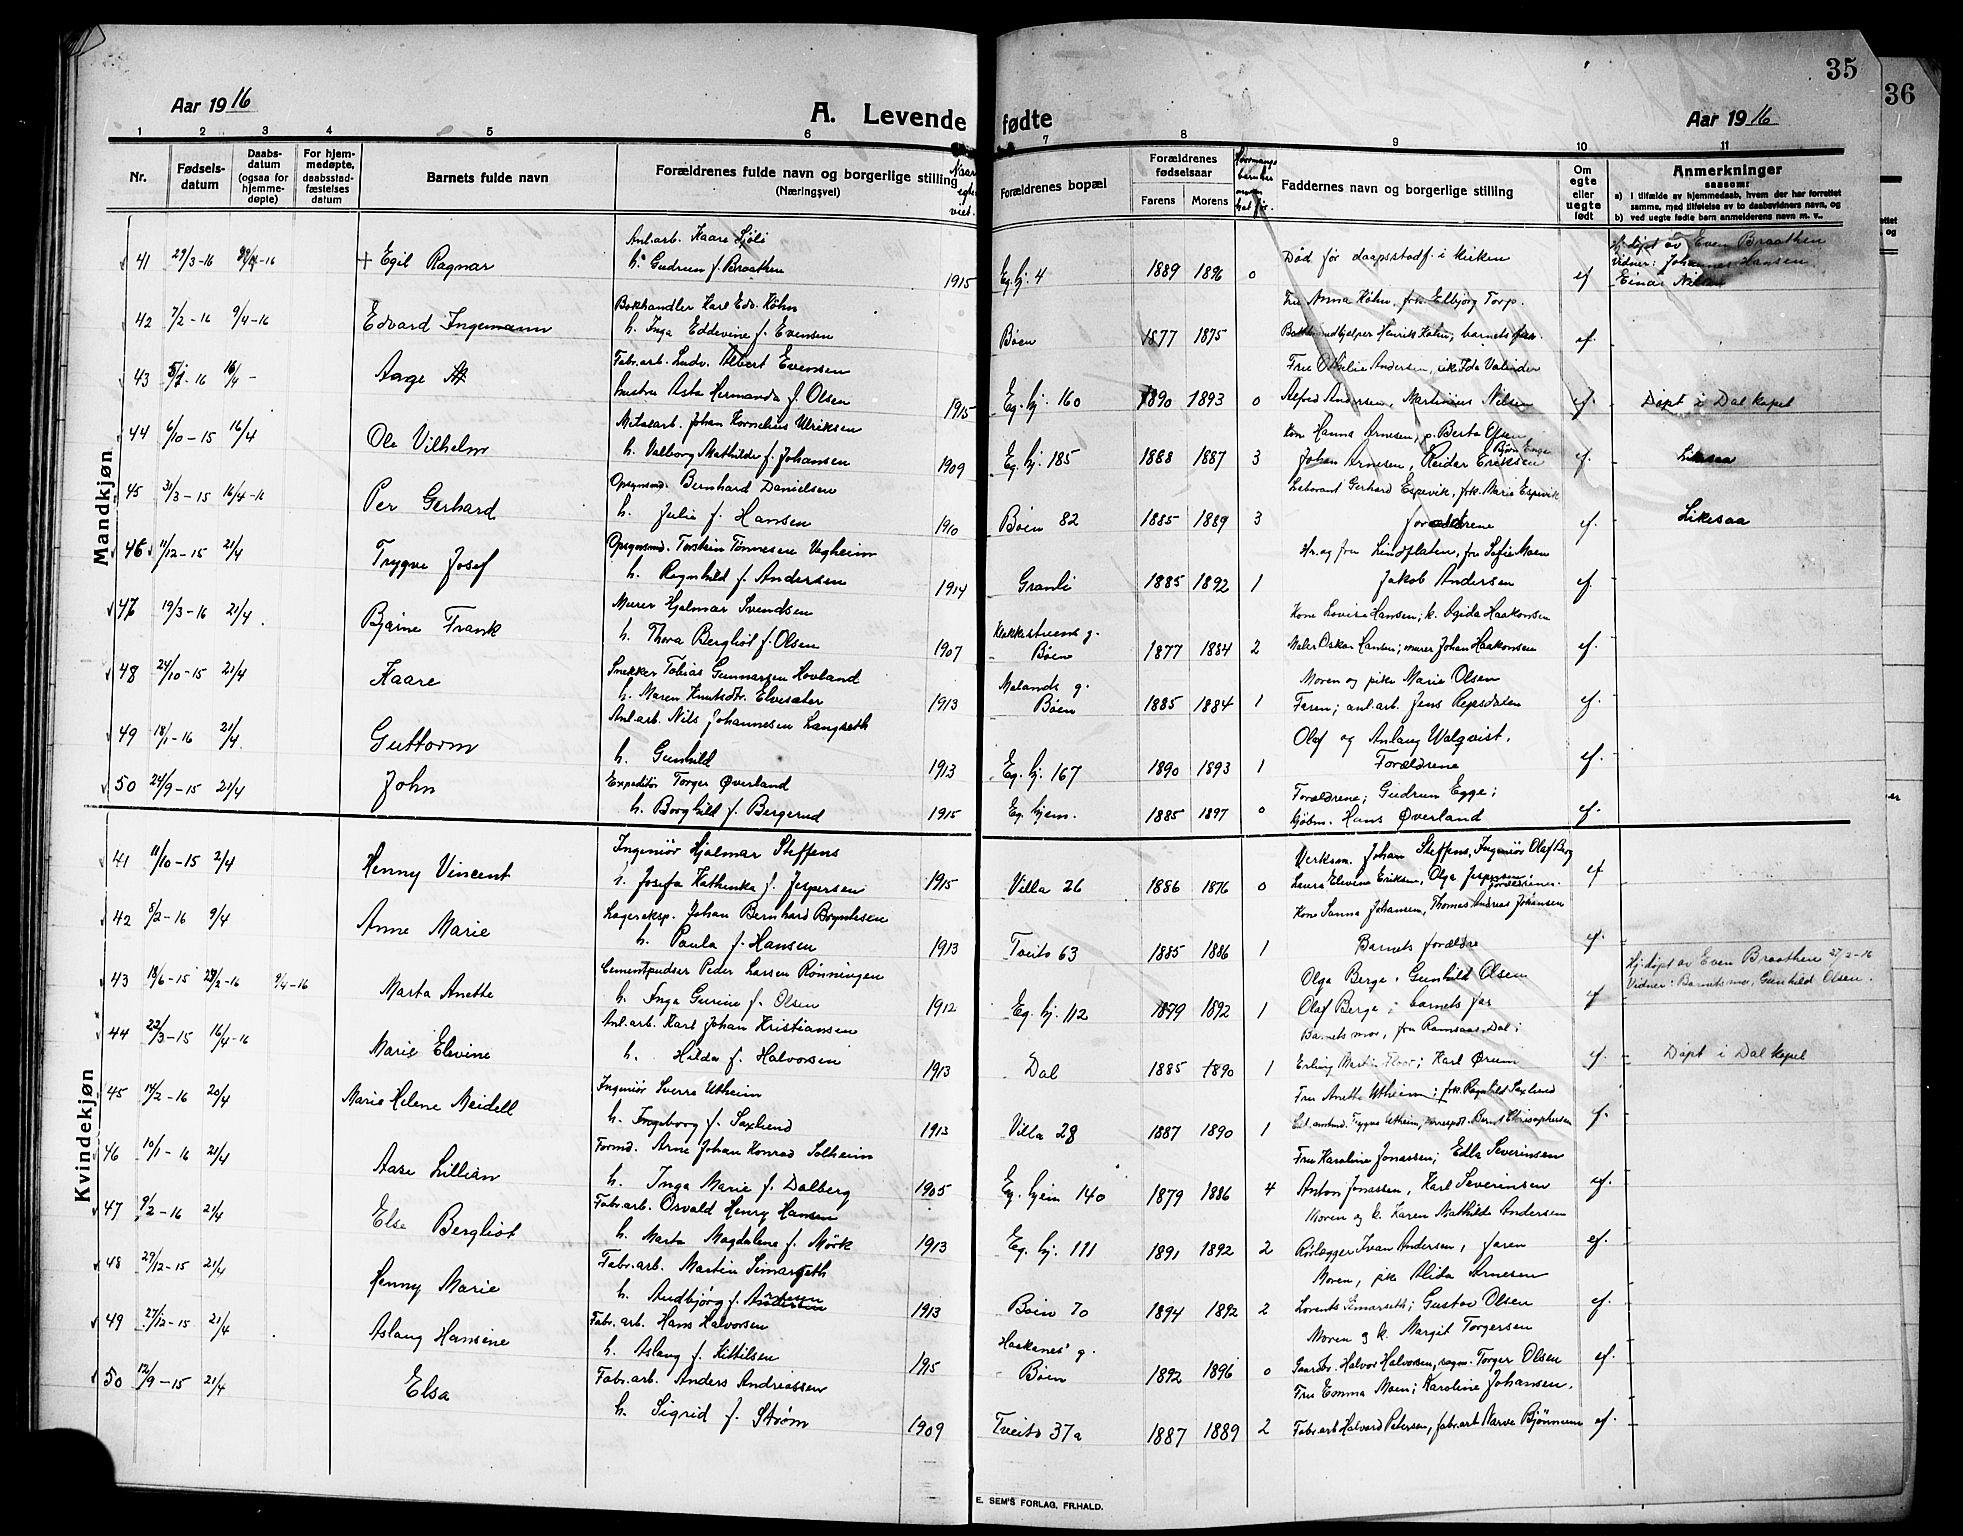 35
36
Aar 1916
A. Levende fødte
Aar 1916
1 2 3 4 5 6 7 8 9 10 11
Nr.
Fødsels-
datum
Daabs-
datum
(ogsaa for
hjemme-
døpte)
For hjem-
medøpte,
daabsstad-
fæstelses
datum
Barnets fulde navn
Forældrenes fulde navn og borgerlige stilling
(Næringsvei)
Naar
viet.
Forældrenes bopæl
Forældrenes
fødselsaar
Farens Morens
Faddernes navn og borgerlige stilling
Om
egte
eller
uegte
født
Anmerkninger
saasom:
a) i tilfælde av hjemmedaab, hvem der har forrettet
samme, med tilføielse av to daabsvidners navn, og
b) ved uegte fødte barn anmelderens navn m. v.
Mandkjøn
Anl.arb. Kaare Sjöli
41 29/3-16 + Egil Ragnar h. Gudrun f. Braathen 1915 Eg. hj. 4 1889 1896 0 Død før daapsstadf. i kirken ef
Hj.døpt av Even Braathen
Vidner: Johannes Hansen
Einar Nilsen
Bokhandler Karl Edv. Köhn Fru Anna Köhn, frk. Elbjörg Torp.
42 7/2-16 9/4-16 Edvard Ingemann h. Inga Eddevine f. Evensen Bøen 1877 1875 Henrik Köhn, barnets far. ef.
Fabr.arb. Ludv. Albert Evensen Fru Othilie Andersen,
43 16/4 Aage hustru Asta Hermanda f. Olsen 1915 Eg. hj. 160 1890 1893 0 Alfred Andersen, Martinius Nilsen ef. Døpt i Dal kapel
Johan Kornelius Ulriksen Kone Hanna Arnesen, p. Berta Olsen
44 6/10-15 16/4 Ole Vilhelm h. Valborg Mathilde f. Johansen 1909 Eg. hj. 185 1888 1887 3 Johan Arnesen, Reidar Eriksen ef. Likesaa
Opsynsmd. Bernhard Danielsen Laborant Gerhard Espevik, frk. Marie Espevik
45 31/3-15 16/4-16 Per Gerhard h. Julie f. Hansen 1910 Bøen 82 1885 1889 3 forældrene ef. Likesaa
Opsynsmd. Torstein Tønnesen Vegheim Hr. og fru Lindflaten, fru Sofie Moen
46 11/12-15 21/4 Trygve Josef h. Ragnhild f. Andersen 1914 Granli 1885 1892 1 Jakob Andersen ef.
Murer Hjalmar Svendsen Kone Lovise Hansen; k. Agida Haakonsen
47 19/3-16 21/4 Bjarne Frank h. Thora Bergliot f. Olsen 1907 Bøen 1877 1884 2 Maler Oskar Hansen; murer Johan Haakonsen ef.
Snekker Tobias Gunnarsen Hovland Mælands g. Moren og pike Marie Olsen
48 24/10-15 21/4 Kaare h. Maren Knutsdtr. Elvesæter 1913 Bøen 1885 1884 1 Faren; anl.arb. Jens Repsdalen ef.
Anl.arb. Nils Johannesen Langseth Olaf og Anlaug Walqvist.
49 18/1-16 21/4 Guttorm h. Gunhild 1913 Eg. hj. 167 1890 1893 1 Forældrene ef.
Expeditør Torger Øverland Forældrene; Gudrun Egge;
50 24/9-15 21/4 John h. Borghild f. Bergerud 1915 Eg. hjem. 1885 1897 0 kjøbm. Hans Øverland ef.
Kvindekjøn
Ingeniør Hjalmar Steffens Verksm. Johan Steffens, Ingeniør Olaf Berg
41 11/10-15 2/4 Henny Vincent h. Josefa Kathinka f. Jespersen 1915 Villa 26 1886 1876 0 Laura Elevine Eriksen, Olga Jespersen; forældrene. ef
Lagereksp. Johan Bernhard Kone Sanna Johansen, Thomas Andreas Johansen
42 5/2-16 9/4 Anne Marie h. Paula f. Hansen 1913 Tveito 63 1885 1886 1 Barnets forældre ef.
Cementpudser Peder Larsen Rønningen Olga Berge, Gunhild Olsen
43 18/6-15 9/4-16 Marta Anette h. Inga Gurine f. Olsen 1912 Eg. hj. 112 1879 1892 1 Olaf Berge; barnets far ef
Hj.døpt av Even Braathen 27/2-16
Vidner: Barnets mor, Gunhild Olsen.
Anl.arb. Karl Johan Kristiansen Barnets mor, fru Ramsaas, Dal;
44 22/3-15 16/4-16 Marie Elevine h. Hilda f. Halvorsen 1913 Dal 1885 1890 1 Erling Karl Ørum ef. Døpt i Dal kapel
Ingeniør Sverre Utheim Fru Anette Utheim; frk. Ragnhild Saxlund
45 14/2-16 20/4 Marie Helene Meidell h. Ingeborg f. Saxlund 1913 Villa 28 1887 1890 1 Trygve Utheim, Bernt Christophersen ef.
Formd. Arne Johan Konrad Solheim Fru Karoline Jonassen; Edla Severinsen
46 10/1-16 21/4 Aase Lillian h. Inga Marie f. Dalberg 1905 Eg. hjem 140 1879 1886 4 Anton Jonassen, Karl Severinsen ef.
Fabr.arb. Osvald Henry Hansen Moren og k. Karen Mathilde Andersen
47 9/2-16 21/4 Else Bergliot h. Marta Magdalene f. Mørk 1913 Eg. hj. 111 1891 1892 2 Rørlegger Ivan Andersen, faren ef.
Fabr.arb. Martin Simarseth Moren, pike Alida Arnesen
48 29/12-15 21/4 Henny Marie h. Audbjørg f. 1913 Bøen 70 1894 1892 2 Lorents Simarseth; Gustav Olsen ef.
Fabr. arb. Hans Halvorsen Haakanes' g. Moren og k. Margit Torgersen
49 27/12-15 21/4 Aslaug Hansine h. Aslaug f. Kittilsen 1915 Bøen 1892 1896 0 Gaardbr. Halvor Halvorsen, Torger Olsen ef.
Fabr.arb. Anders Andreassen Fru Emma Moen; Karoline Johansen.
50 12/9-15 21/4 Elsa h. Sigrid f. Strøm 1909 Tveito 37a 1887 1889 2 Fabr.arb Halvard Petersen, fabr.arb Narve Bjönnum ef.
E. SEM'S FORLAG, FR.HALD.